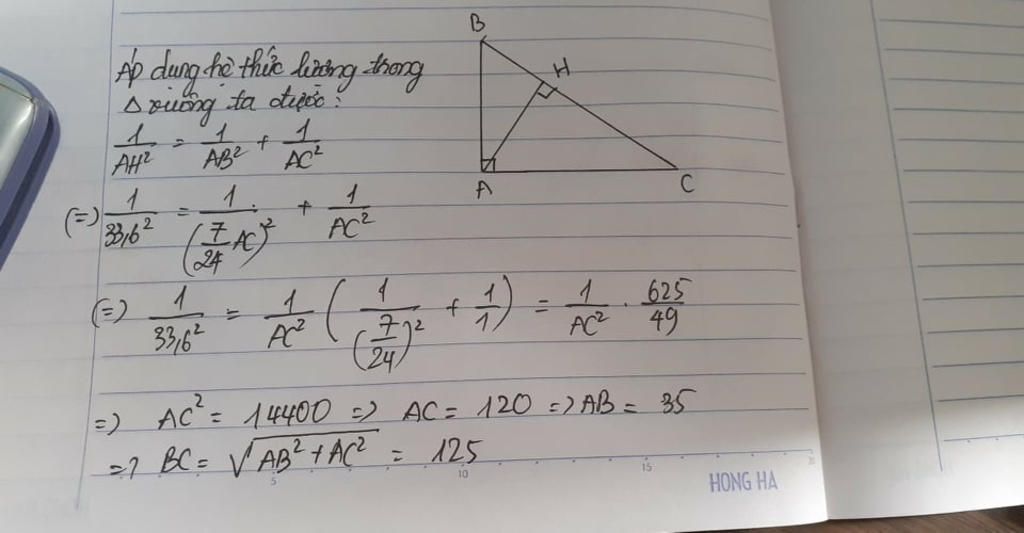 B
Áp dụng hệ thức lượng trong
H
Δ vuông ta được:
1/AH² = 1/AB² + 1/AC²
A
C
(=) 1/33,6² = 1/(7/24 AC)² + 1/AC²
(=) 1/33,6² = 1/AC² (1/(7/24)² + 1/1) = 1/AC² . 625/49
=) AC² = 14400 =) AC = 120 =) AB = 35
=) BC = √(AB² + AC²) = 125
5 10 15 20
HONG HA